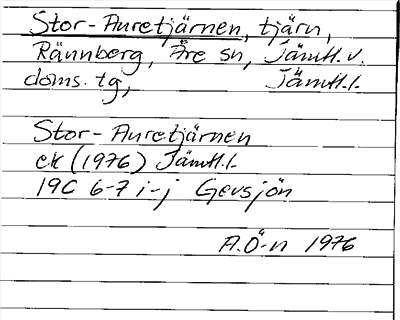 Stor-Auretjärnen, tjärn,
Rännberg, Åre sn, Jämtl. v.
doms. tg, Jämtl.l.
Stor-Auretjärnen
ek (1976) Jämtl.l.
19C 6-7 i-j Gevsjön
A.Ö-n 1976